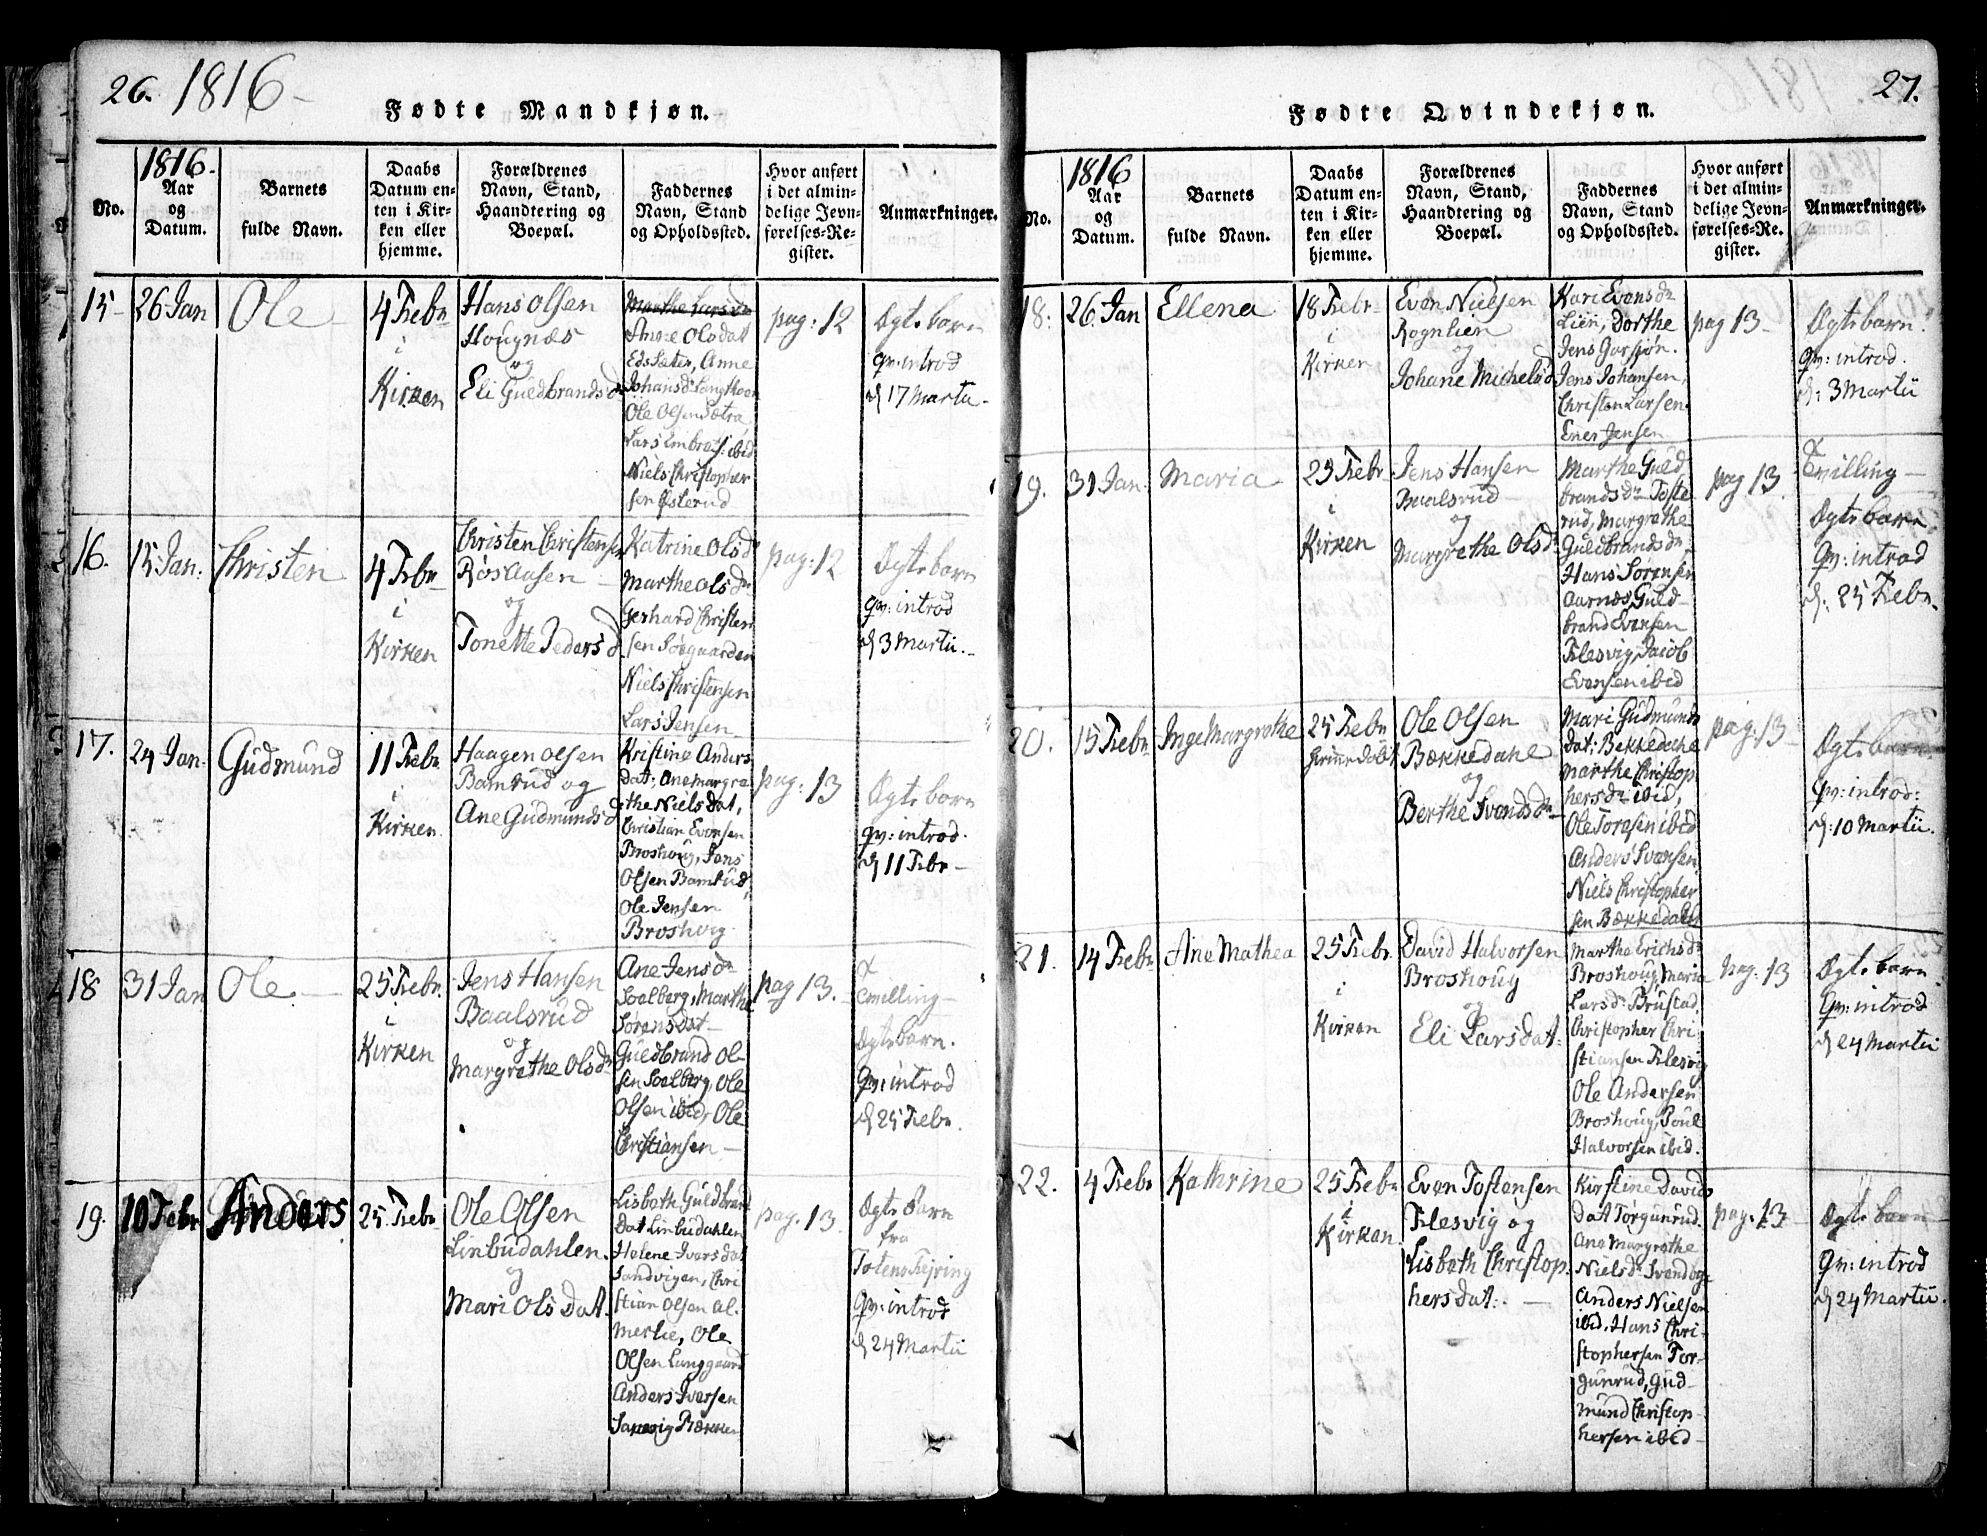 26. 1816
Fødte Mandkjøn.
No.
1816.
Aar
og
Datum.
Barnets
fulde Navn.
Daabs
Datum en-
ten i Kir-
ken eller
hjemme.
Forældrenes
Navn, Stand,
Haandtering og
Boepæl.
Faddernes
Navn, Stand
og Opholdssted.
Hvor anført
i det almin-
delige Jevn-
førelses-Re-
gister.
Anmærkninger.
15
26 Jan
Ole
4 Febr
i
Kirken
Hans Olsen
Hougnæs
og
Eli Guldbrandsd
Marthe Larsdr
Anne Olsdatt
Anne
Ole Olsen Sætra
Lars Embrets: ibid
Niels Christopher
sen Østerud
pag: 12
Ægte barn
qv: introd
d 17 Martii
16.
15 Jan:
Christen
4 Febr
i
Kirken
Christen Christensen
Røsaasen
og
Tonette Pedersd.
Katrine Olsd
Marthe Olsdr
Gerhard Christen
sen Søgaarden
Niels Christensen
Lars Jensen
pag: 12
Ægte barn
qv: introd
d 3 Martii.
17.
24 Jan.
Gudmund
11 Febr
i
Kirken
Haagen Olsen
Bamrud og
Ane Gudmundsd
Kirstine Anders
Dat; Ane Margre
the Niels Dat,
Christian Evensen
Broshoug, Jens
Olsen Bamrud,
Ole Jensen
Broshoug
pag: 13
Ægte barn
qv: introd.
d 11 Febr
18
31 Jan
Ole
25 Febr.
i
Kirken
Jens Hansen
Baalsrud
og
Margrethe Olsdr
Ane Jensdr
Soelberg, Marthe
Sørensdat
Guldbrand Ol
sen Soelberg, Ole
Olsen ibid, Ole
Christiansen
pag 13.
Tvilling
Ægte barn.
Qv: introd
d 25 Febr.
19.
10 Febr
Anders
25 Febr
Ole Olsen
Linbudahlen.
og
Mari Ols Dat.
Lisbeth Guldbran
Dat Linbudahlen
Helene Ivers dat
Sandvigen, Chri
stian Olsen Al
merlie, Ole
Olsen Lunggaard
Anders Iversen
Bækken
pag. 13
Ægte Barn
fra
Totens Fjering
Qv: introd
d 24 Martii
27.
Fødte Qvindekjøn.
No.
1816
Aar
og
Datum.
Barnets
fulde Navn.
Daabs
Datum en-
ten i Kir-
ken eller
hjemme.
Forældrenes
Navn, Stand,
Haandtering og
Boepæl.
Faddernes
Navn, Stand
og Opholdssted.
Hvor anført
i det almin-
delige Jevn-
førelses-Re-
gister.
Anmærkninger.
18.
26 Jan
Ellena
18 Febr
i
Kirken
Even Nielsen
Rognlien
og
Johane Michelsd
Kari Evensdr
Lien, Dorthe
Jens Garsjøn.
Jens Johansen,
Christen Larsen
Ener Jensen
pag 13
Ægte barn.
Qv: introd.
d: 3 Martii
19.
31 Jan.
Maria
25 Febr
i
Kirken
Jens Hansen
Baalsrud
og
Margrethe Olsd.
Marthe Guld
brandsdr Toste
rud, Margrethe
Guldbrandsdr
Hans Sørensen
Aarnes, Guld
brand Evensen
Flesvig, Jacob
Evensen ibid
pag 13.
Tvilling
Ægte barn
Qv: introd
d: 25 Febr.
20.
15 Febr
Inge Margrethe
25 Febr
hiemedøbt
Ole Olsen
Bækkedahl
og
Berthe Svendsdr
Mari Gudmunds
dat: Bekkedahl
Marthe Christop
hersdr ibid,
Ole Toresen ibid
Anders Svensen
Niels Christopher
sen Bækkedahl
pag. 13
Ægte barn
Qv: introd:
d: 10 Martii.
21.
14 Febr
Ane Mathea
25 Febr.
i
Kirken
David Halvorsen
Broshoug
og
Eli Larsdat.
Marthe Erichsdr
Broshoug, Maria
Larsdr Brustad,
Christopher Chri
stiansen Flesvig
Ole Andersen
Broshoug, Poul
Halvorsen ibid.
pag. 13
Ægte barn
Qv: introd
d 24 Martii
22.
4 Febr
Kathrine
25 Febr
i
Kirken.
Even Tostensen
Flesvig og
Lisbeth Christop
hersdat:
Kirstine Davids
dat Torgunrud.
Ane Margrethe
Nielsdr
Anders Nielsen
ibid. Hans Chri
stophersen Tor-
gunrud, Gud-
mund Christop
hersen ibid
pag. 13
Ægte barn
Qv: introd
d 24 Martii.